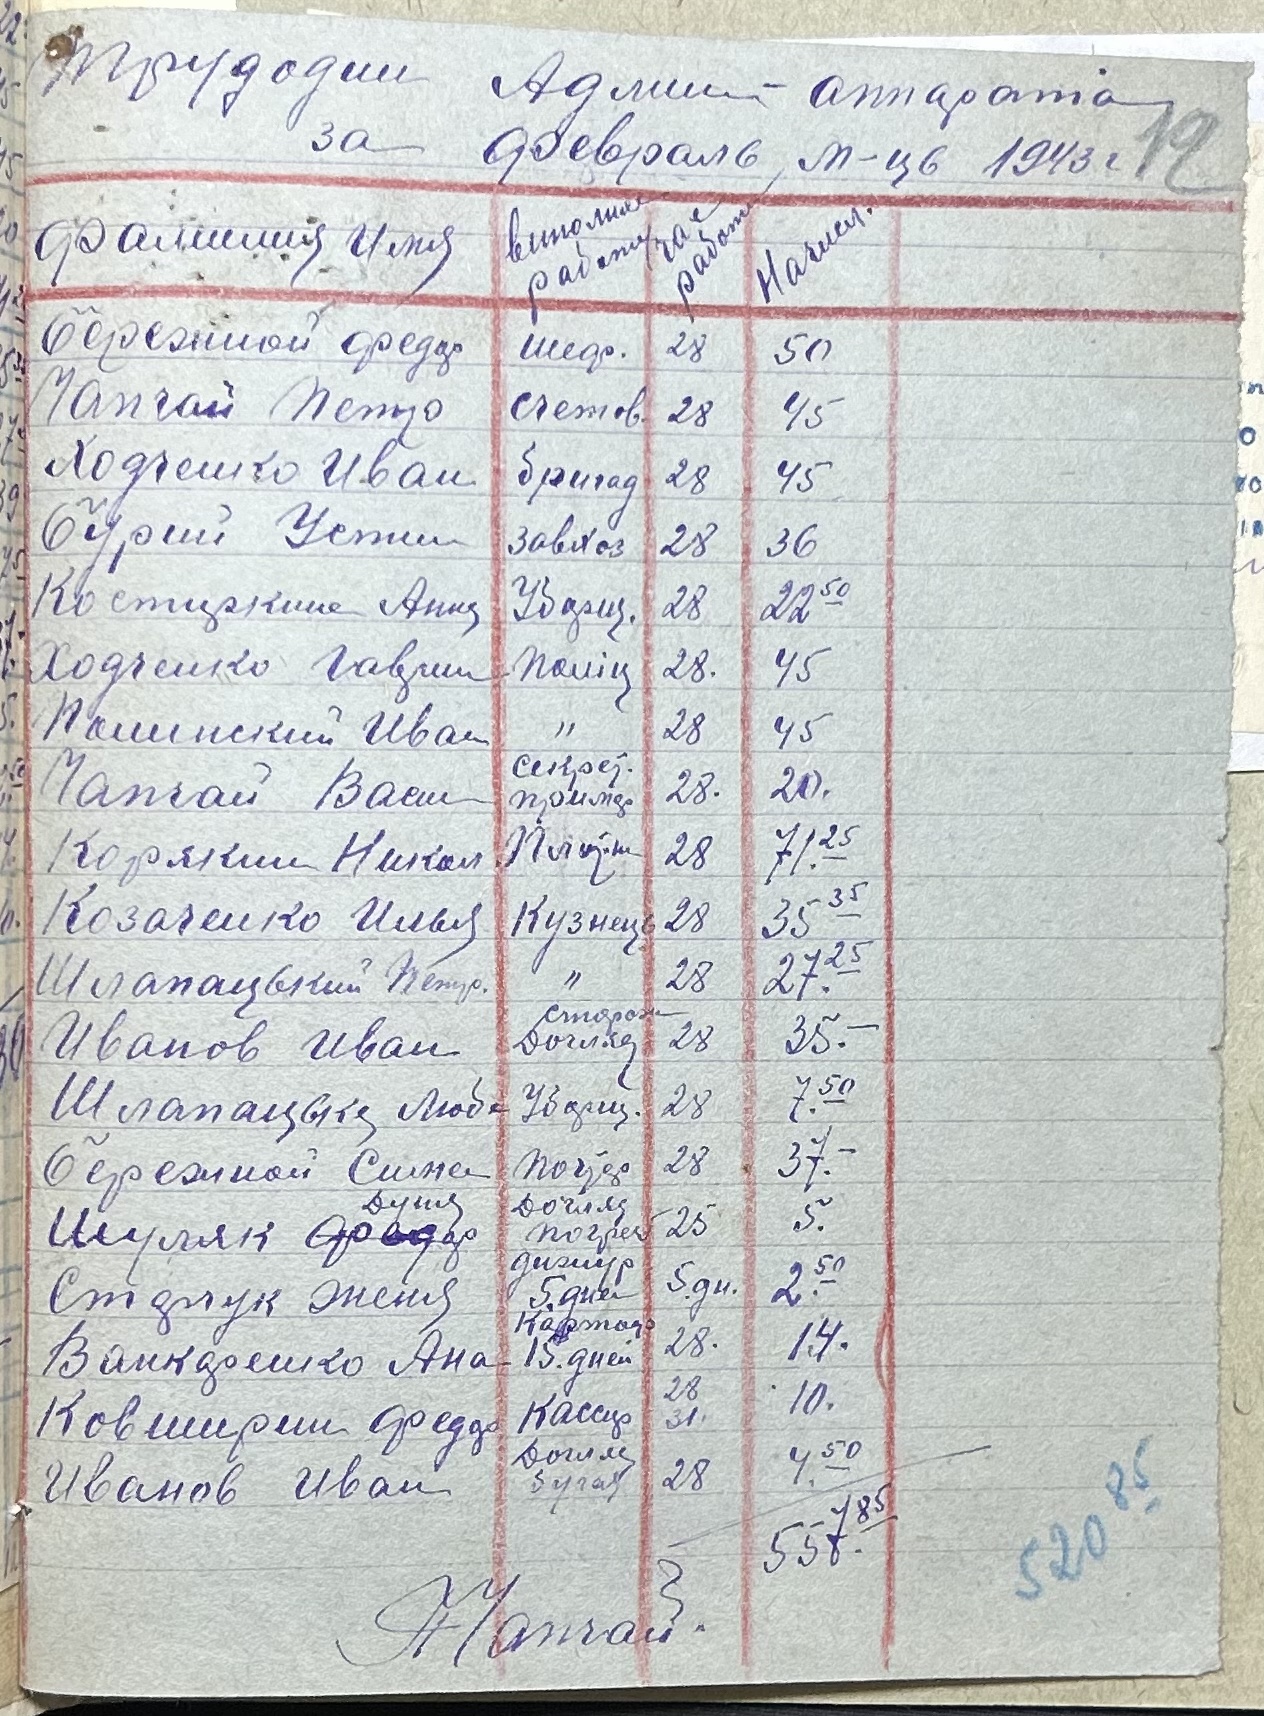 Трудодни Админ-аппарата
за февраль м-ць 1943 г. 12
Фамилия Имя выполняе работу час работы Начисл.
Бережной Федор шеф. 28 50
Чапчай Петро счетов. 28 45
Ходченко Иван бригад 28 45
Бурий Устин завхоз 28 36
Костиркина Анна Уборщ. 28 22.50
Ходченко Гаврил Поліц 28. 45
Полинский Иван " 28 45
Чапчай Васил секрет. 28. 20.
Корякин Никол. Плотн 28 71.25
Козаченко Илья Кузнець 28 35 35
Шлапацький Петр. " 28 27.25
Иванов Иван сторож Догляд 28 35.-
Шлапацька Люба Уборщ. 28 7.50
Бережной 28 37.-
Шуляк Дуня Догляд погреб 25 5.
Стдчук Женя дижур 5.дней 5.дн. 2.50
Ванждренко Ана 15.дней 28. 14.
Ковширин Федор Кассир 28 31. 10.
Иванов Иван Догляд бугая 28 4.50
557.85
520 85
Чапчай.